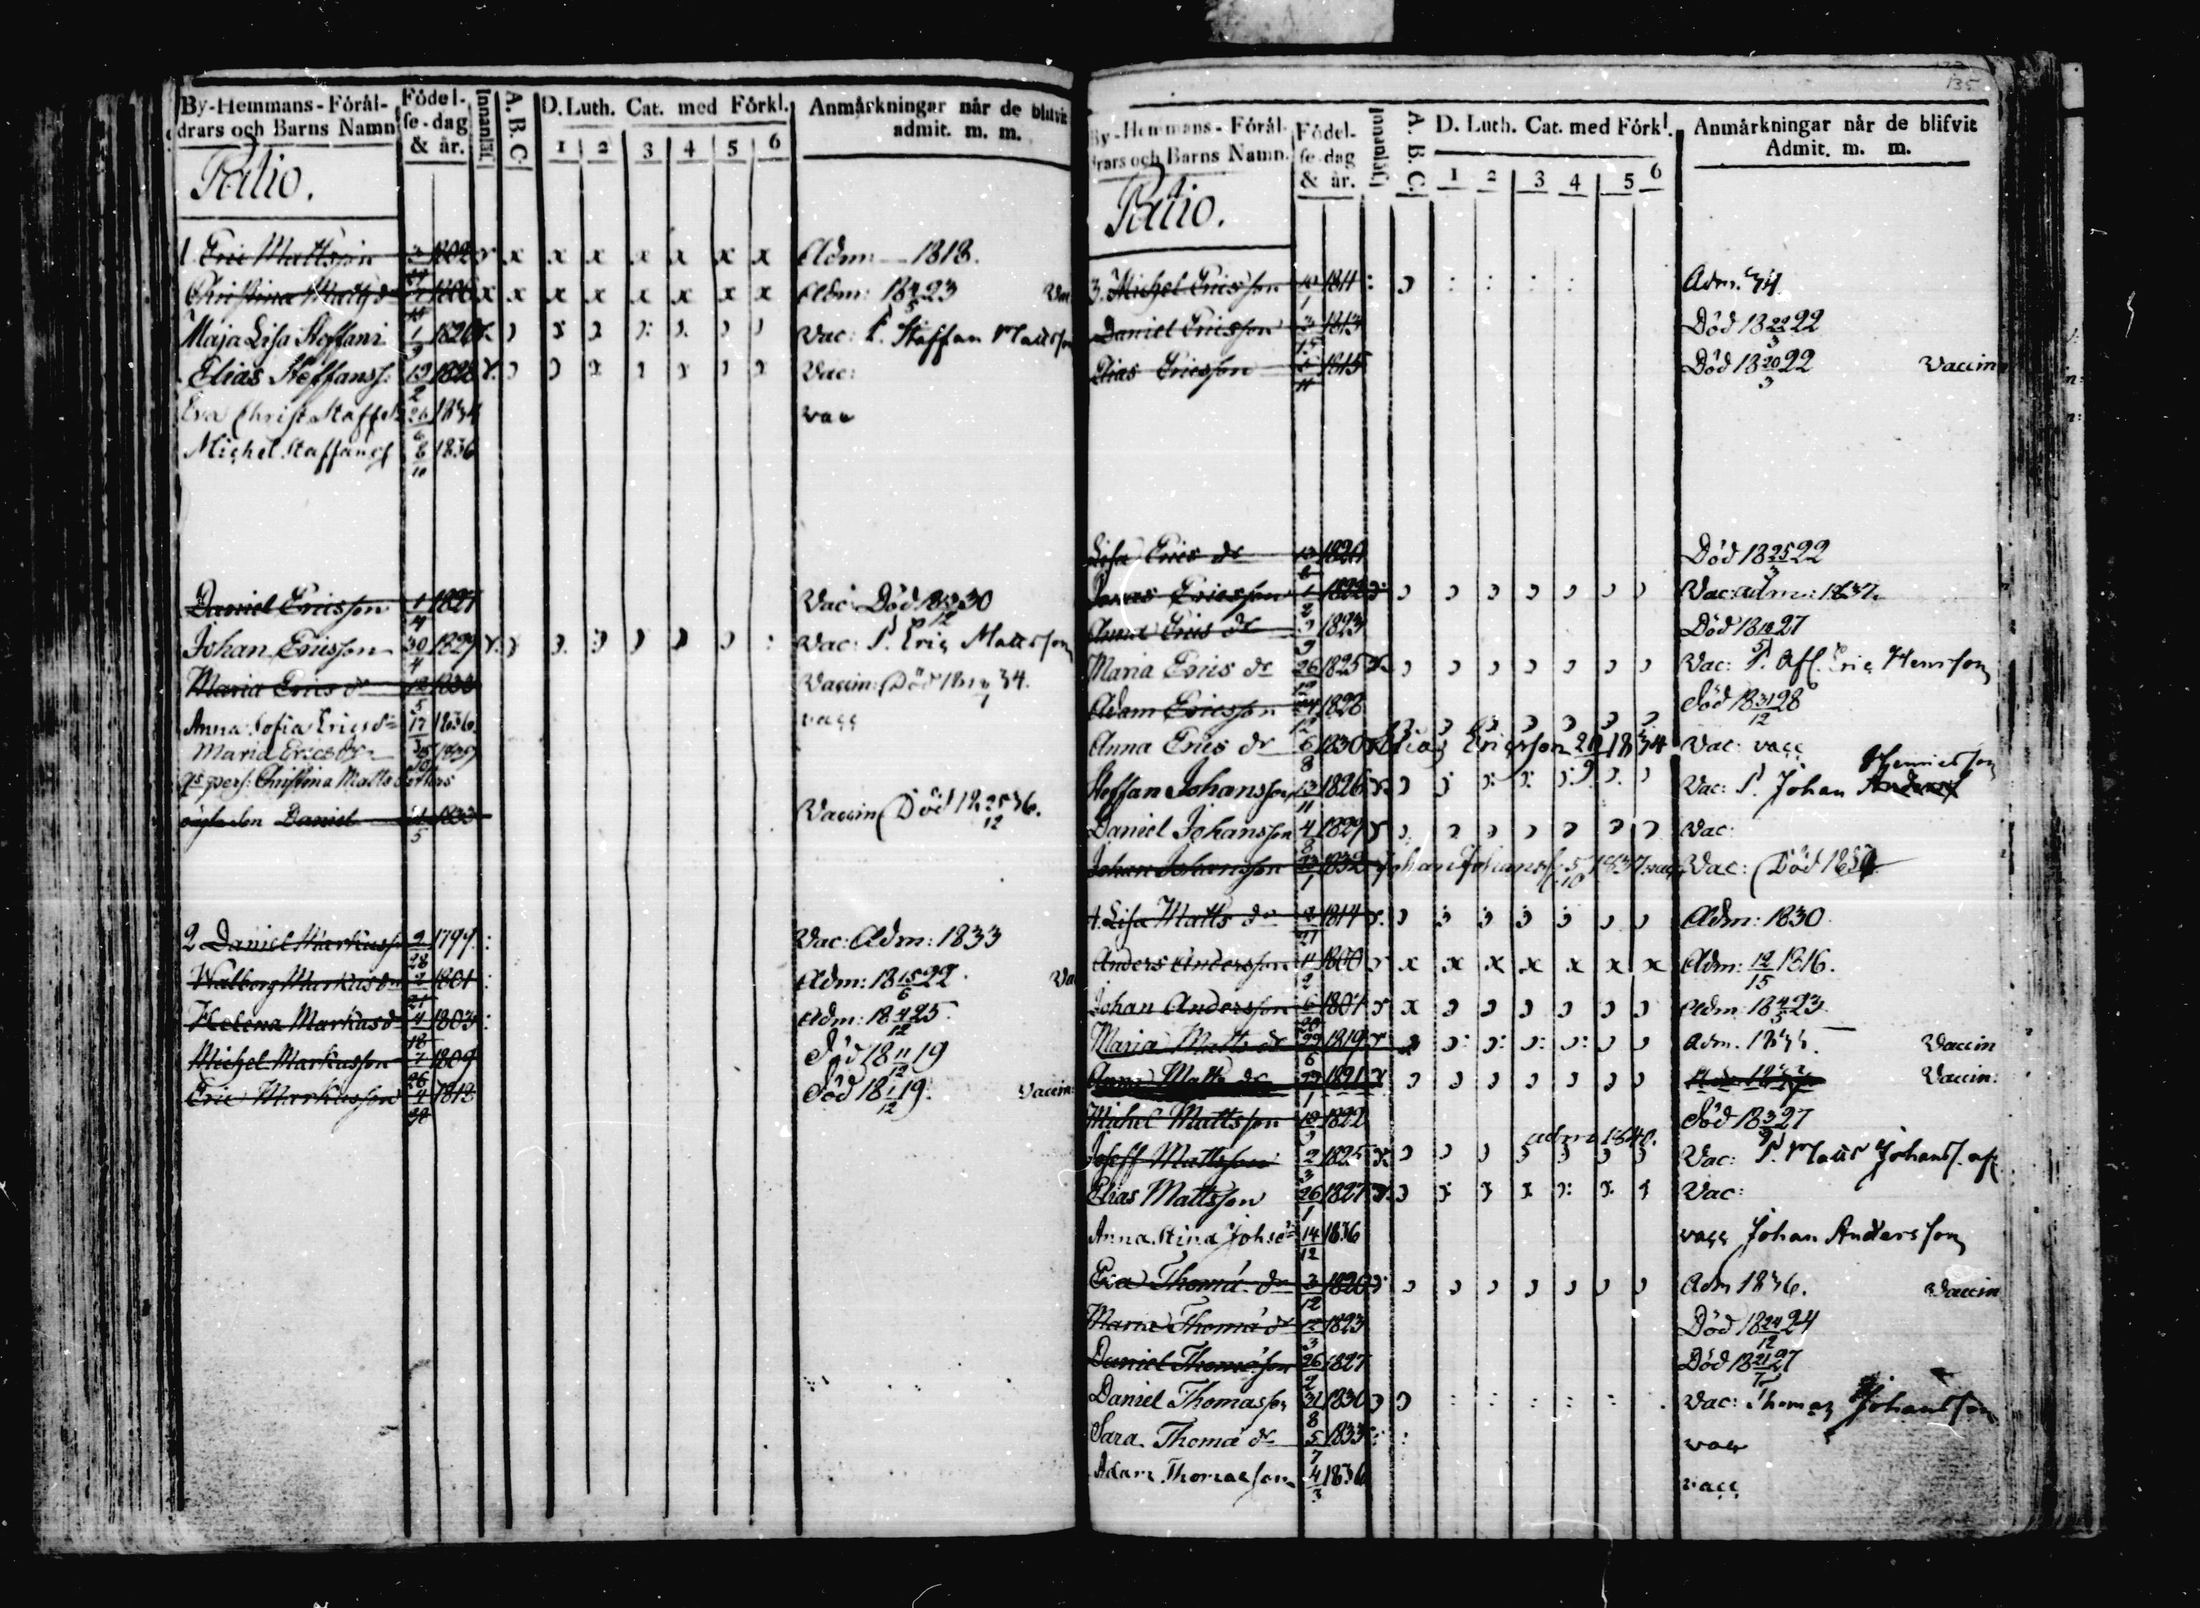 By-Hemmans-Förål-
drars och Barns Namn
Födel-
se-dag
& år.
Innanläs.
A. B. C.
D. Luth. Cat. med Förkl.
1 2 3 4 5 6
Anmårkningar når de blifvit
admit. m. m.
Pätio.
1 Eric Mattsson 1802 x x x x x x x Adm: 1818.
Christina Matts dr x x x x x x x x Adm: 18 4/5 23
Maja Lisa Steffans 1/9 1826 Vac: Staffan Mattsson
Elias Steffanss. 12/2 1828 Vac:
Eva Christ. Staffs 26 1834 vac
Michel Staffanss 8/10 1836
Daniel Ericsson 1 1827 Vac: Död 30
Johan Ericsson 30/4 1829 Vac: Eric Mattsson
Maria Erics dr 12/5 1833 Vaccin: Död 34.
Anna Sofia Ericsdr 17 1836 vacc
Maria Ericsdr 1839
Christina Matts dotters
oägta son Daniel 5 1833 Vaccin Död 36.
2 Daniel Markuss 9/28 1799 : Vac: Adm: 1833
Walborg Markusdr 2/21 1801 : Adm: 18 15/6 22.
Helena Markusd 4/18 1803 : Adm: 18 4/12 25.
Michel Markusson 7/26 1809 Död 18 11/12 19
Eric Markusson 4 1812 Död 18 1/12 19. Vaccin:
135
By-Hemmans-Förål-
drars och Barns Namn.
Födel-
se-dag
& år.
Innanläs.
A. B. C.
D. Luth. Cat. med Förkl.
1 2 3 4 5 6
Anmårkningar når de blifvit
Admit. m. m.
Pätio.
3. Michel Ericsson 1811 Adm. 34
Daniel Ericsson 1813 Död 18 22/3 22
Elias Ericsson 1815 Död 18 20/3 22 Vaccin
Lisa Erics dr 1820 Död 18 25/3 22
Jonas Ericsson 1/2 1822 Vac: adm: 1837.
Anna Erics dr 1823 Död 27
Maria Erics dr 26/12 1825 Vac: Eric Henrsson
Adam Ericsson 1828 Död 18 31/12 28
Anna Erics dr 6/8 1830 Elias Ericsson 1834 Vac: vacc
Steffan Johansson 13/11 1826 Vac: Johan Henricsson
Daniel Johansson 4/8 1829 Vac:
Johan Johansson 1832 Johan Johanss. 5/10 1837 vacc Vac: Död
4. Lisa Matts dr 1814 Adm: 1830
Anders Andersson 1800 x x x x x x x Adm: 12/15 1816.
Johan Andersson 6 1804 x Adm: 18 23.
Maria Matts dr 1819 Adm. Vaccin
Anna Matts dr 1821 Vaccin:
Michel Mattsson 1822 Död 27
adm 1840.
Joseff Mattsson 2/3 1825 Vac: Matts Johanss.
Elias Mattsson 26/1 1827 Vac:
Anna Stina Johsdr 14/12 1836 vacc Johan Andersson
Eva Thoma dr 3/12 1820 Adm 1836. Vaccin
Maria Thoma dr 12/3 1823 Död 18 24/12 24
Daniel Thomasson 26/2 1827 Död 27
Daniel Thomasson 31/8 1830 Vac: Thomas Johansson
Sara Thoma dr 5/7 1833 vacc
Adam Thomasson 4/3 1836 vacc